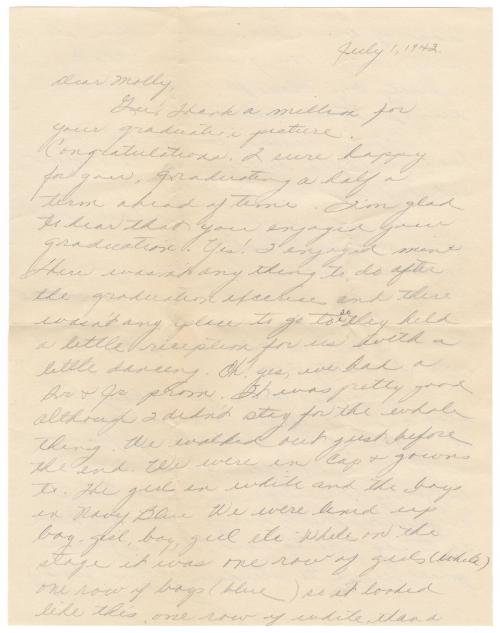 July 1, 1942
Dear Molly,
Gee! thank a million for
your graduation picture.
Congratulations. I sure happy
for you, graduating a half a
term ahead of time. I'm glad
to hear that you enjoyed your
graduation. Yes! I enjoyed mine
there wasn't any thing to do after
the graduation excercise and there
wasn't any place to go to so they held
a little reception for us with a
little dancing. Oh, yes, we had a
Sr & Jr prom. It was pretty good
although I didn't stay for the whole
thing. We walked out just before
the end. We were in Cap & gowns
to. The girls in white and the boys
in Navy Blue We were lined up
boy, girl, boy, girl etc While on the
stage it was one row of girls (white)
one row of boys (blue) so it looked
like this, one row of white, than a